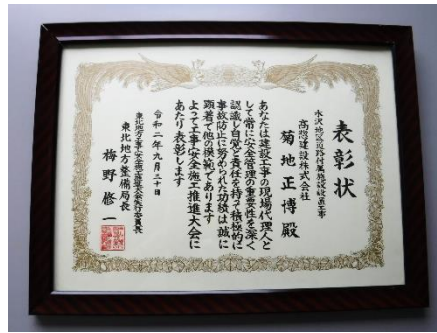 表彰状
水沢地区道路付属施設設置工事
高惣建設株式会社
菊地正博殿
あなたは建設工事の現場代理人と
して常に安全管理の重要性を深く
認識し自覚と責任を持って積極的に
事故防止に努められた功績は誠に
顕著で他の模範であります
よって工事安全施工推進大会に
あたり表彰します
令和二年九月三十日
東北地方工事安全施工推進大会実行委員長
東北地方整備局長
梅野修一